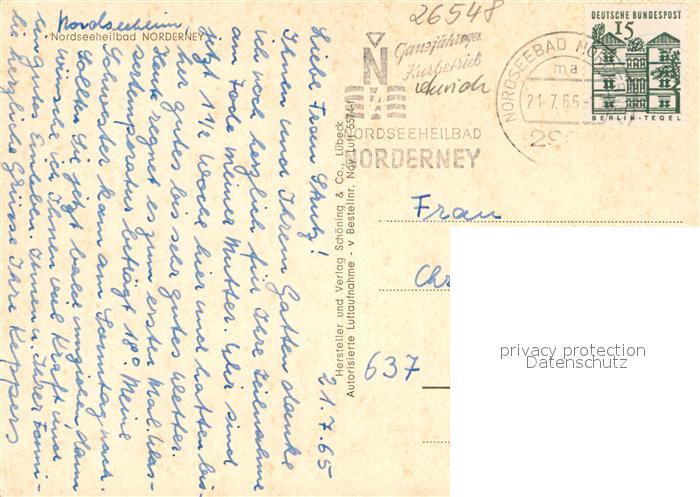 Nordseeheim
Nordseeheilbad NORDERNEY
21.7.65
Liebe Frau Schulz!
Ihnen und Ihrem Gatten danke
ich noch herzlich für Ihre Teilnahme
am Tode meiner Mutter. Wir sind
jetzt 1½ Woche hier und hatten bis-
her gutes bis sehr gutes Wetter.
Heute regnet es zum ersten Mal. Was-
sertemperatur beträgt 18°. Meine
Schwester kam am Sonntag nach.
Sollten Sie jetzt bald umziehen dann
wünsche ich Ihnen viel Kraft und
ein gutes Einleben. Ihnen u. Ihrer Fami-
lie herzliche Grüsse Ihre Keppers
Hersteller und Verlag Schöning & Co., Lübeck
Autorisierte Luftaufnahme - v Bestellnr. Ney Luft 6574-1
26548
Ganzjähriger
Kurbetrieb
Aurich
N
NORDSEEHEILBAD
NORDERNEY
NORDSEEBAD NO
ma
21.7.65-
29
DEUTSCHE BUNDESPOST
15
BERLIN-TEGEL
Frau
Chr
637
privacy protection
Datenschutz